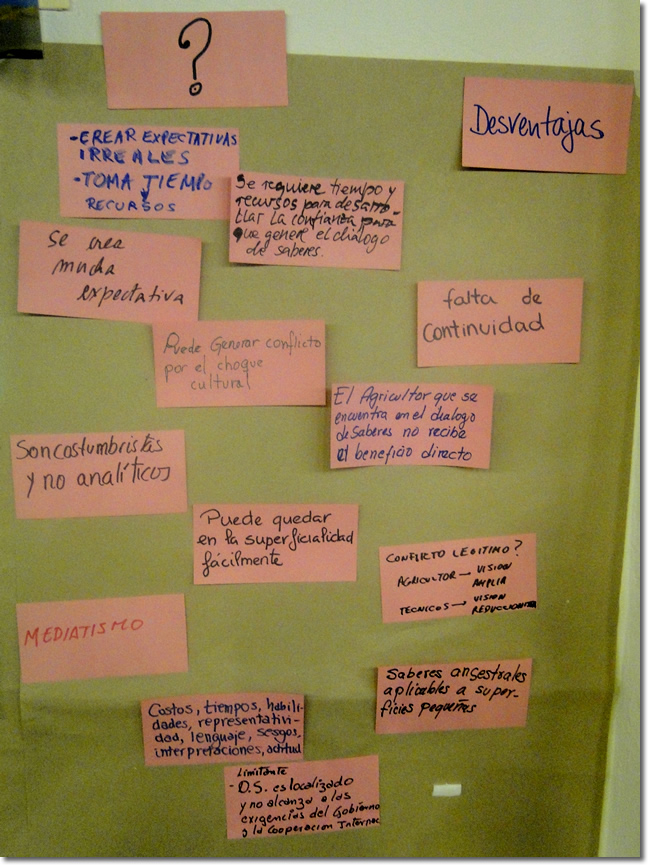 ?
Desventajas
-CREAR EXPECTATIVAS
IRREALES
-TOMA TIEMPO
RECURSOS
Se requiere tiempo y
recursos para desarro-
llar la confianza para
que genere el diálogo
de saberes.
Se crea
mucha
expectativa
falta de
Continuidad
Puede Generar conflicto
por el choque
cultural
El Agricultor que se
encuentra en el dialogo
de saberes no recibe
el beneficio directo
Son costumbristas
y no analíticos
Puede quedar
en la superficialidad
fácilmente
CONFLICTO LEGITIMO?
AGRICULTOR → VISION
AMPLIA
TÉCNICOS → VISION
REDUCCIONISTA
MEDIATISMO
Saberes ancestrales
aplicables a super-
ficies pequeñas
Costos, tiempos, habili-
dades, representativi-
dad, lenguaje, sesgos,
interpretaciones, actitud
Limitante
- D.S. es localizado
y no alcanza a las
exigencias del Gobierno
o la Cooperacion Internac